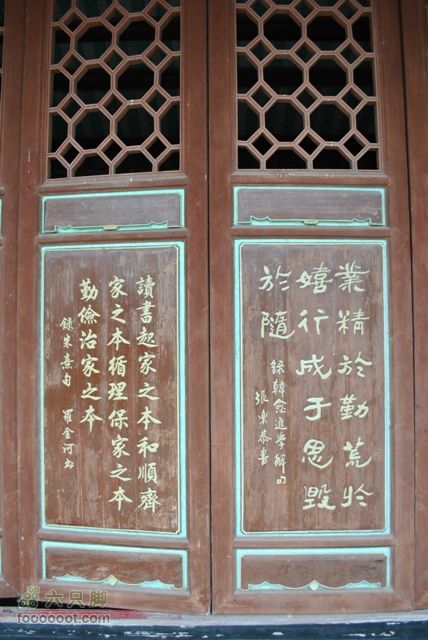 業精於勤荒於
嬉行成于思毀
於隨
録韓愈進學解句
張樂恭書
讀書起家之本和順齊
家之本循理保家之本
勤儉治家之本
録朱熹句 羅金河书
六只脚
foooooot.com